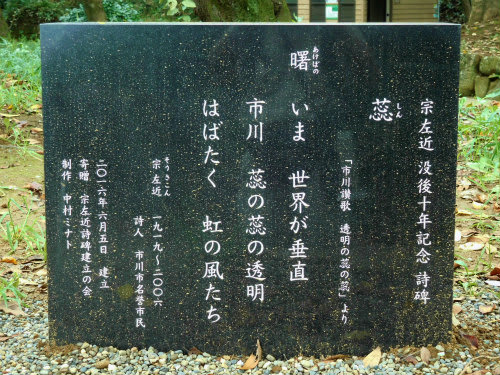 宗左近 没後十年記念 詩碑
蕊
しん
「市川讃歌 透明の蕊の蕊」より
曙 いま 世界が垂直
あけぼの
市川 蕊の蕊の透明
はばたく 虹の風たち
そうさこん
宗左近 一九一九～二〇〇六
詩人 市川市名誉市民
二〇一六年六月五日 建立
寄贈 宗左近詩碑建立の会
制作 中村ミナト